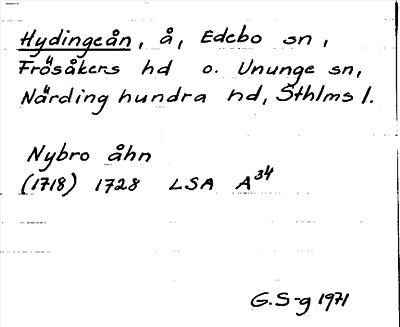 Hydingeån, å, Edebo sn,
Frösåkers hd o. Ununge sn,
Närdinghundra hd, Sthlms l.
Nybro åhn
(1718) 1728 LSA A34
G.S-g 1971